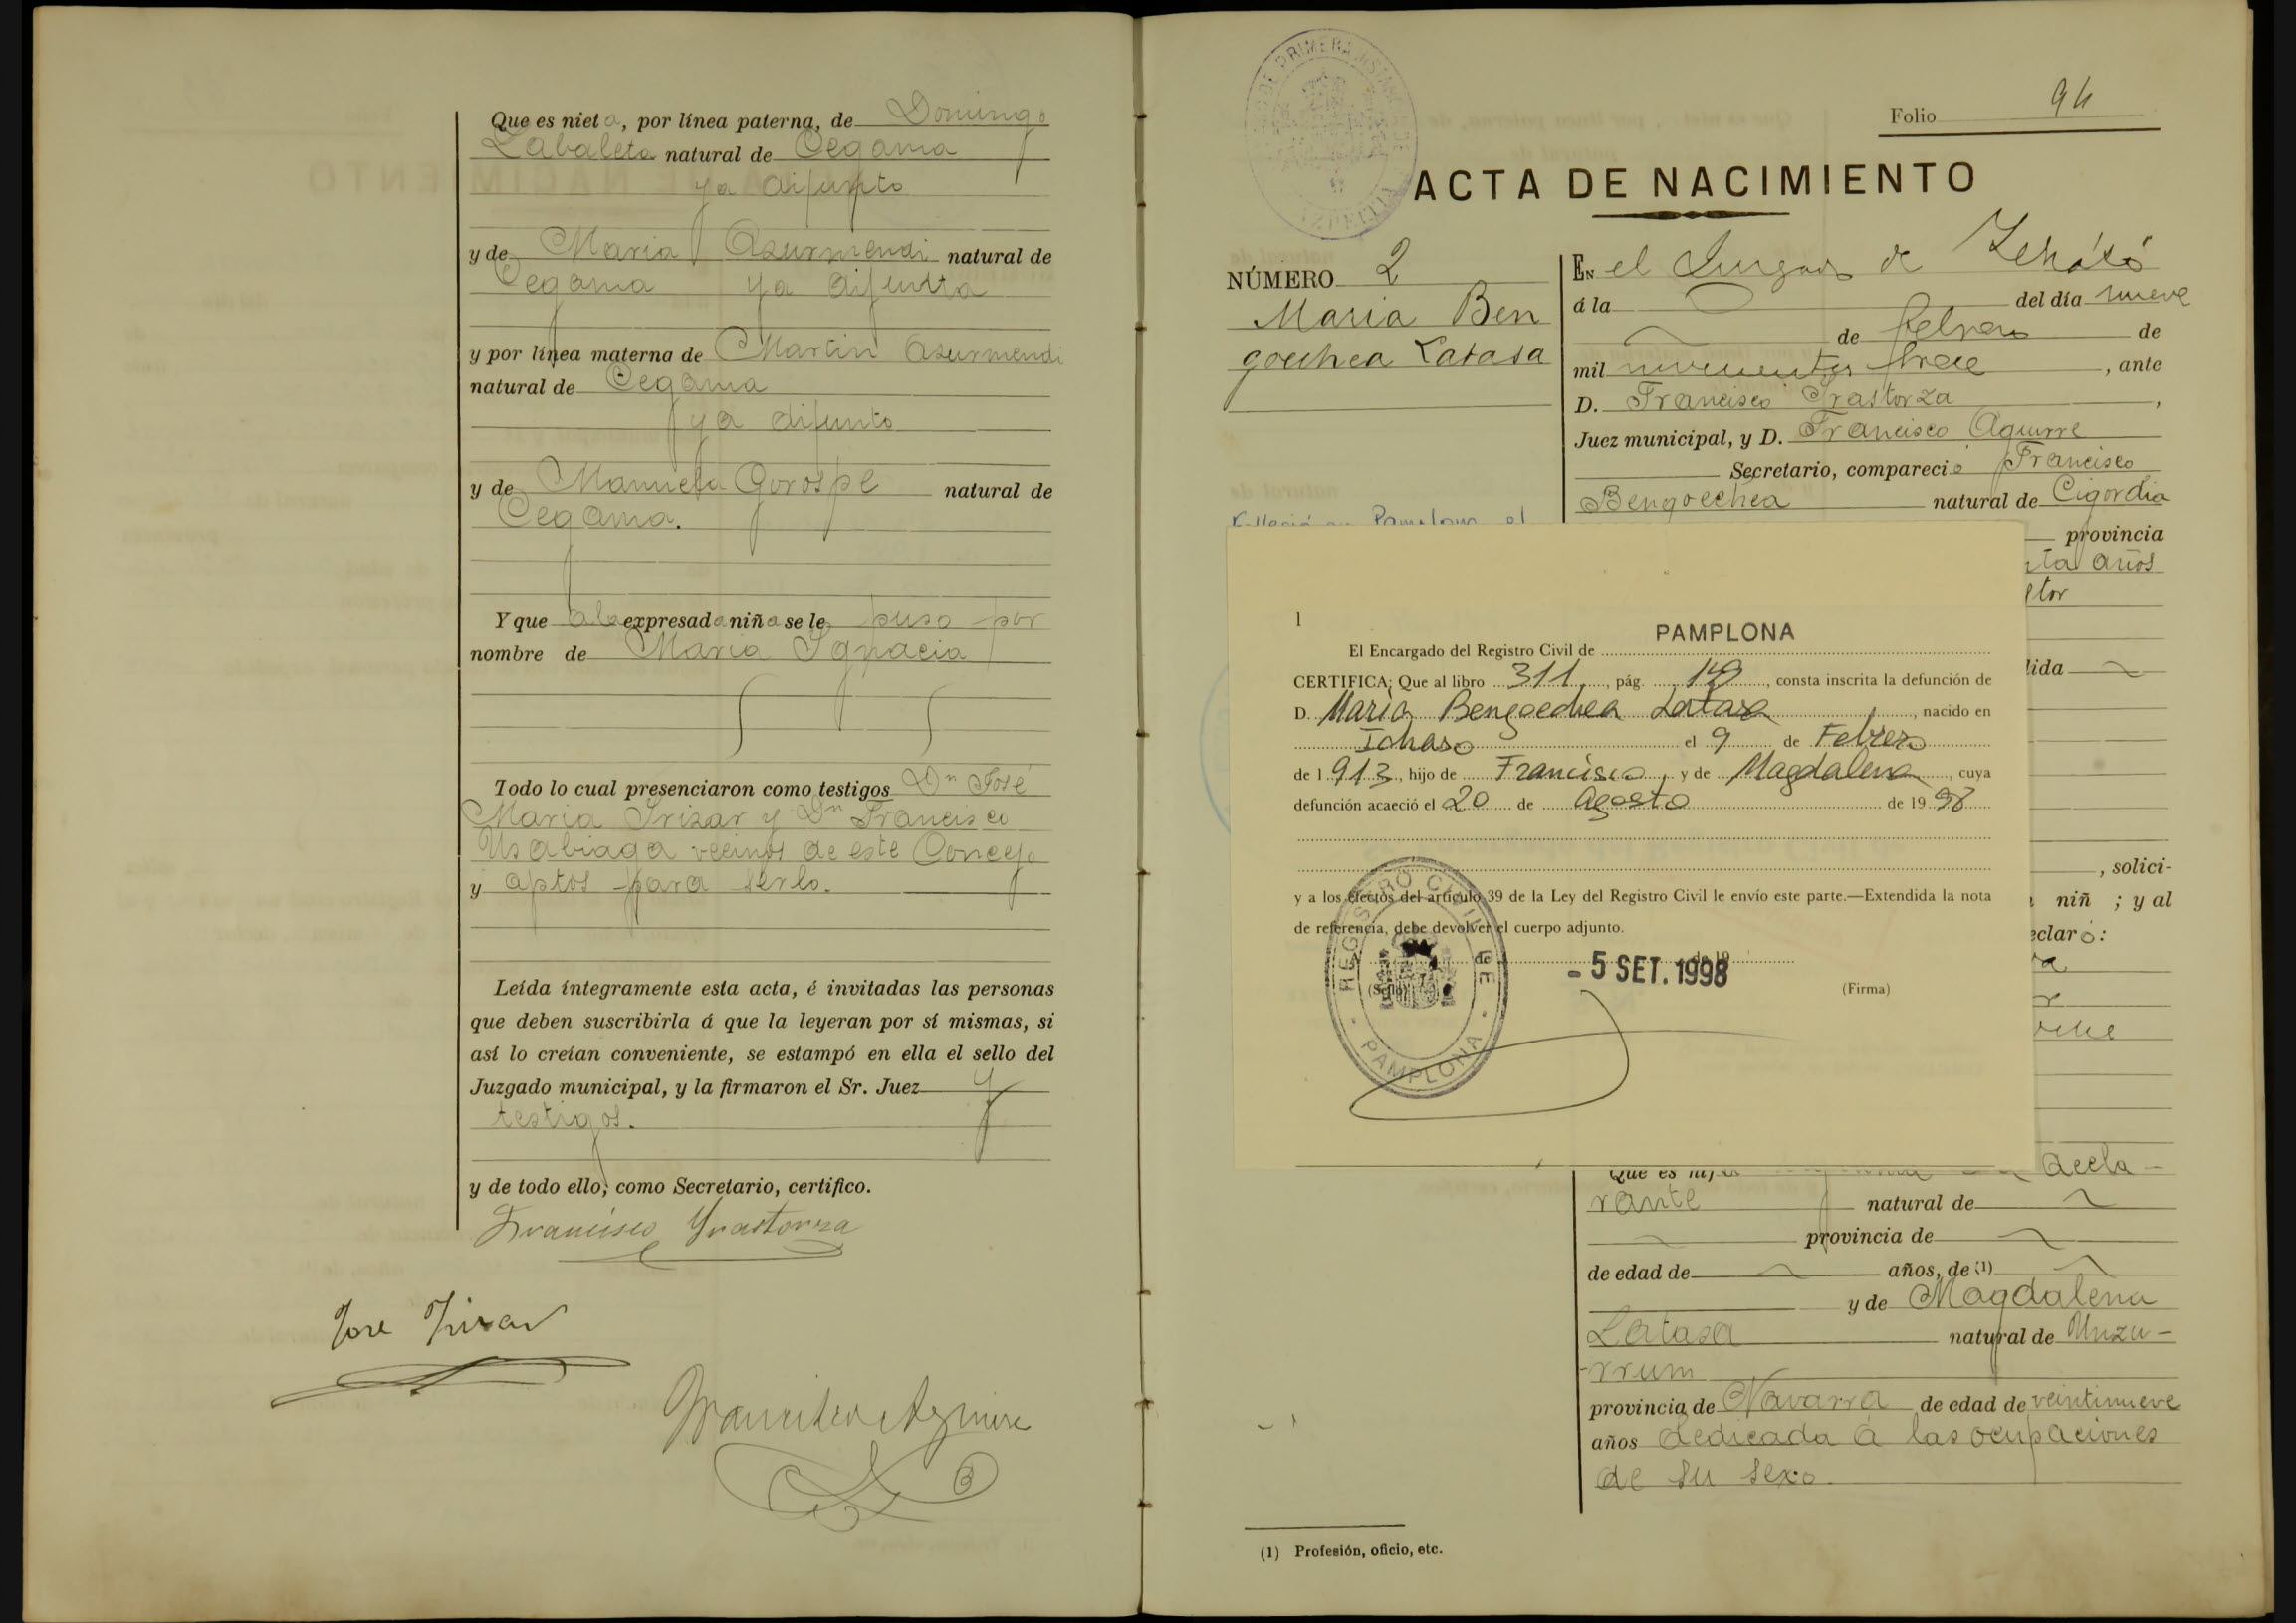 Que es nieta, por línea paterna, de Domingo
Labaleta natural de Cegama
ya difunto
y de Maria Asurmendi natural de
Cegama ya difunta
y por línea materna de Martin Asurmendi
natural de Cegama
ya difunto
y de Manuela Gorospe natural de
Cegama.
Y que a la expresada niña se le puso por
nombre de Maria Ignacia
Todo lo cual presenciaron como testigos Dn José
Maria Irizar y Dn Francisco
Usabiaga vecinos de este Concejo
y aptos para serlo.
Leída íntegramente esta acta, é invitadas las personas
que deben suscribirla á que la leyeran por sí mismas, si
así lo creían conveniente, se estampó en ella el sello del
Juzgado municipal, y la firmaron el Sr. Juez y
testigos.
y de todo ello, como Secretario, certifico.
Francisco Yrastorza
Jose Irizar
Francisco Aguirre
Folio 94
ACTA DE NACIMIENTO
NÚMERO 2
Maria Ben
goechea Latasa
Falleció en Pamplona el
EN el Juzgado de
á la del día nueve
de febrero de
mil novecientos trece, ante
D. Francisco Irastorza,
Juez municipal, y D. Francisco Aguirre
Secretario, compareció Francisco
Bengoechea natural de Cigordia
provincia
nta años
lida
, solici-
niñ ; y al
eclaró:
PAMPLONA
1
El Encargado del Registro Civil de
CERTIFICA: Que al libro 311, pág. 149, consta inscrita la defunción de
D. María Bengoechea Latasa, nacido en
Ichaso el 9 de Febrero
de 1.913, hijo de Francisco, y de Magdalena, cuya
defunción acaeció el 20 de Agosto de 1998
y a los efectos del artículo 39 de la Ley del Registro Civil le envío este parte.—Extendida la nota
de referencia, debe devolver el cuerpo adjunto.
de de 19
- 5 SET. 1998
(Sello) (Firma)
REGISTRO CIVIL DE
· PAMPLONA ·
Que es hija decla-
rante natural de
provincia de
de edad de años, de (1)
y de Magdalena
Latasa natural de Unzu-
rrum
provincia de Navarra de edad de veintinueve
años dedicada á las ocupaciones
de su sexo.
(1) Profesión, oficio, etc.